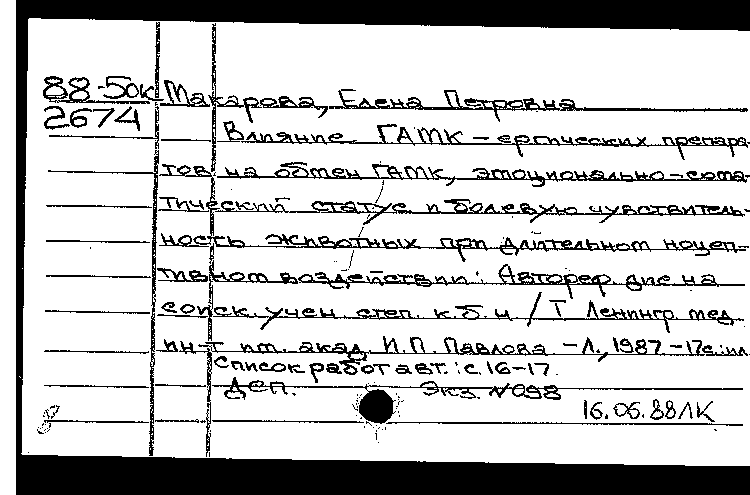 88-5ок Макарова, Елена Петровна
2674
Влияние ГАМК-ергических препара-
тов на обмен ГАМК, эмоционально-сома-
тический статус и болевую чувствитель-
ность животных при длительном ноцеп-
тивном воздействии: Автореф. дис на
соиск. учен. степ. к.б.н / I Ленингр. мед.
ин-т им. акад. И.П. Павлова -Л., 1987 -17с.:ил
Список работ авт.: с 16-17.
Деп. Экз. №098
16.06.88ЛК